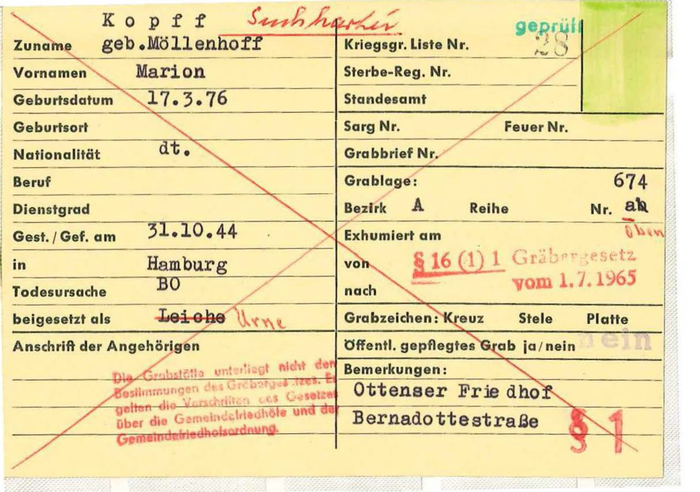 Kopff Suchkartei geprüft
Zuname geb.Möllenhoff Kriegsgr. Liste Nr. 28
Vornamen Marion Sterbe-Reg. Nr.
Geburtsdatum 17.3.76 Standesamt
Geburtsort Sarg Nr. Feuer Nr.
Nationalität dt. Grabbrief Nr.
Beruf Grablage: 674
Dienstgrad Bezirk A Reihe Nr. ab
Gest./Gef. am 31.10.44 Exhumiert am oben
in Hamburg von § 16 (1) 1 Gräbergesetz
Todesursache BO nach vom 1.7.1965
beigesetzt als Leiche Urne Grabzeichen: Kreuz Stele Platte
Anschrift der Angehörigen Öffentl. gepflegtes Grab ja/nein nein
Die Grabstätte unterliegt nicht den Bemerkungen:
Bestimmungen des Gräbergesetzes. Es Ottenser Friedhof
gelten die Vorschriften des Gesetzes
über die Gemeindefriedhöfe und der Bernadottestraße § 1
Gemeindefriedhofsordnung.